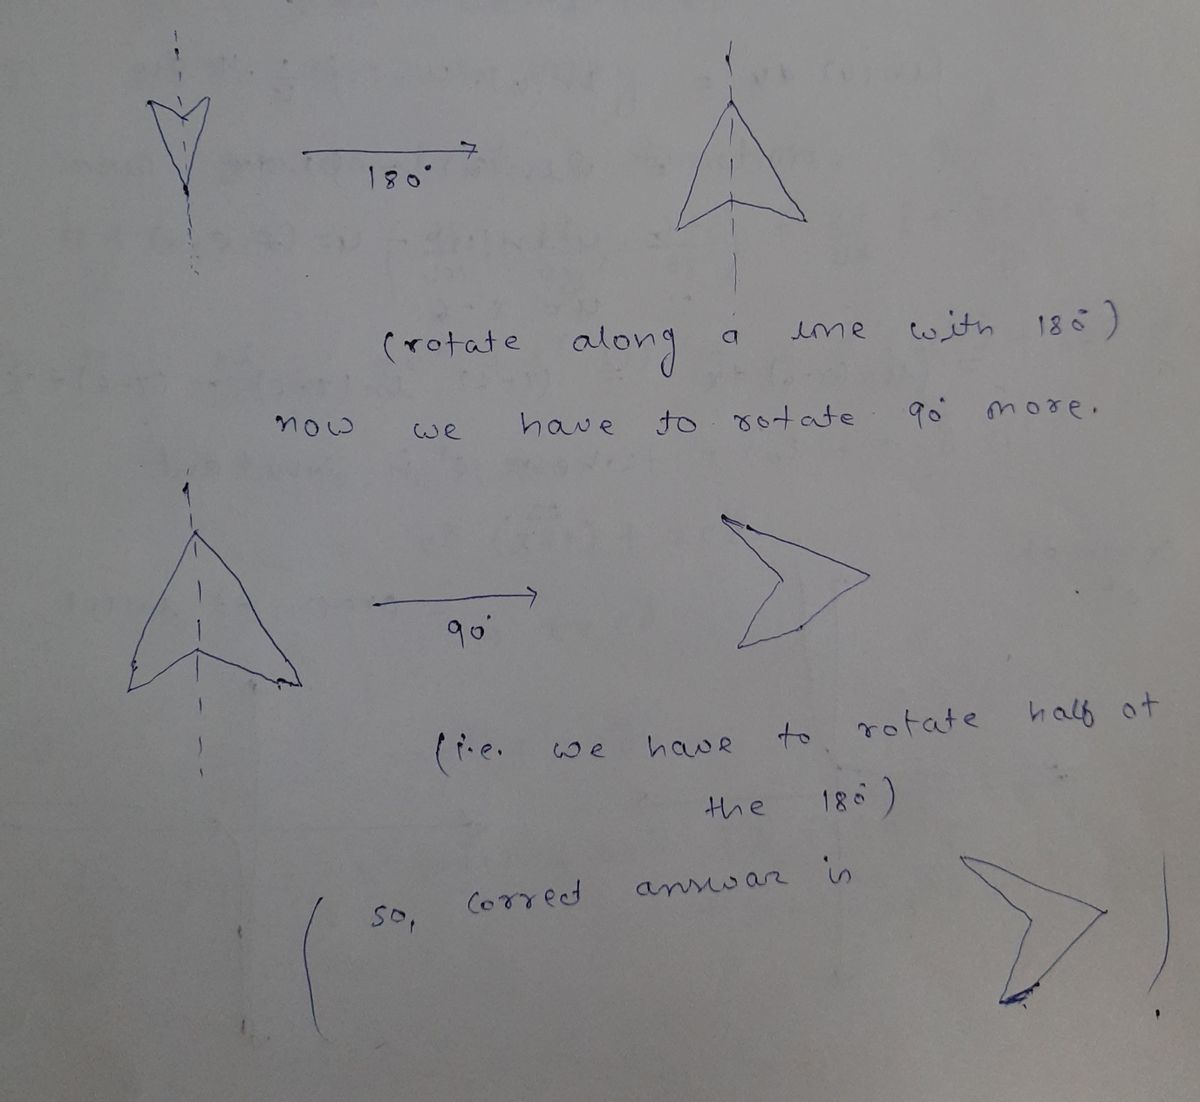 180°
(rotate along a line with 180°)
now we have to rotate 90° more.
90°
(i.e. we have to rotate half of
the 180°)
(so, correct answar is ).